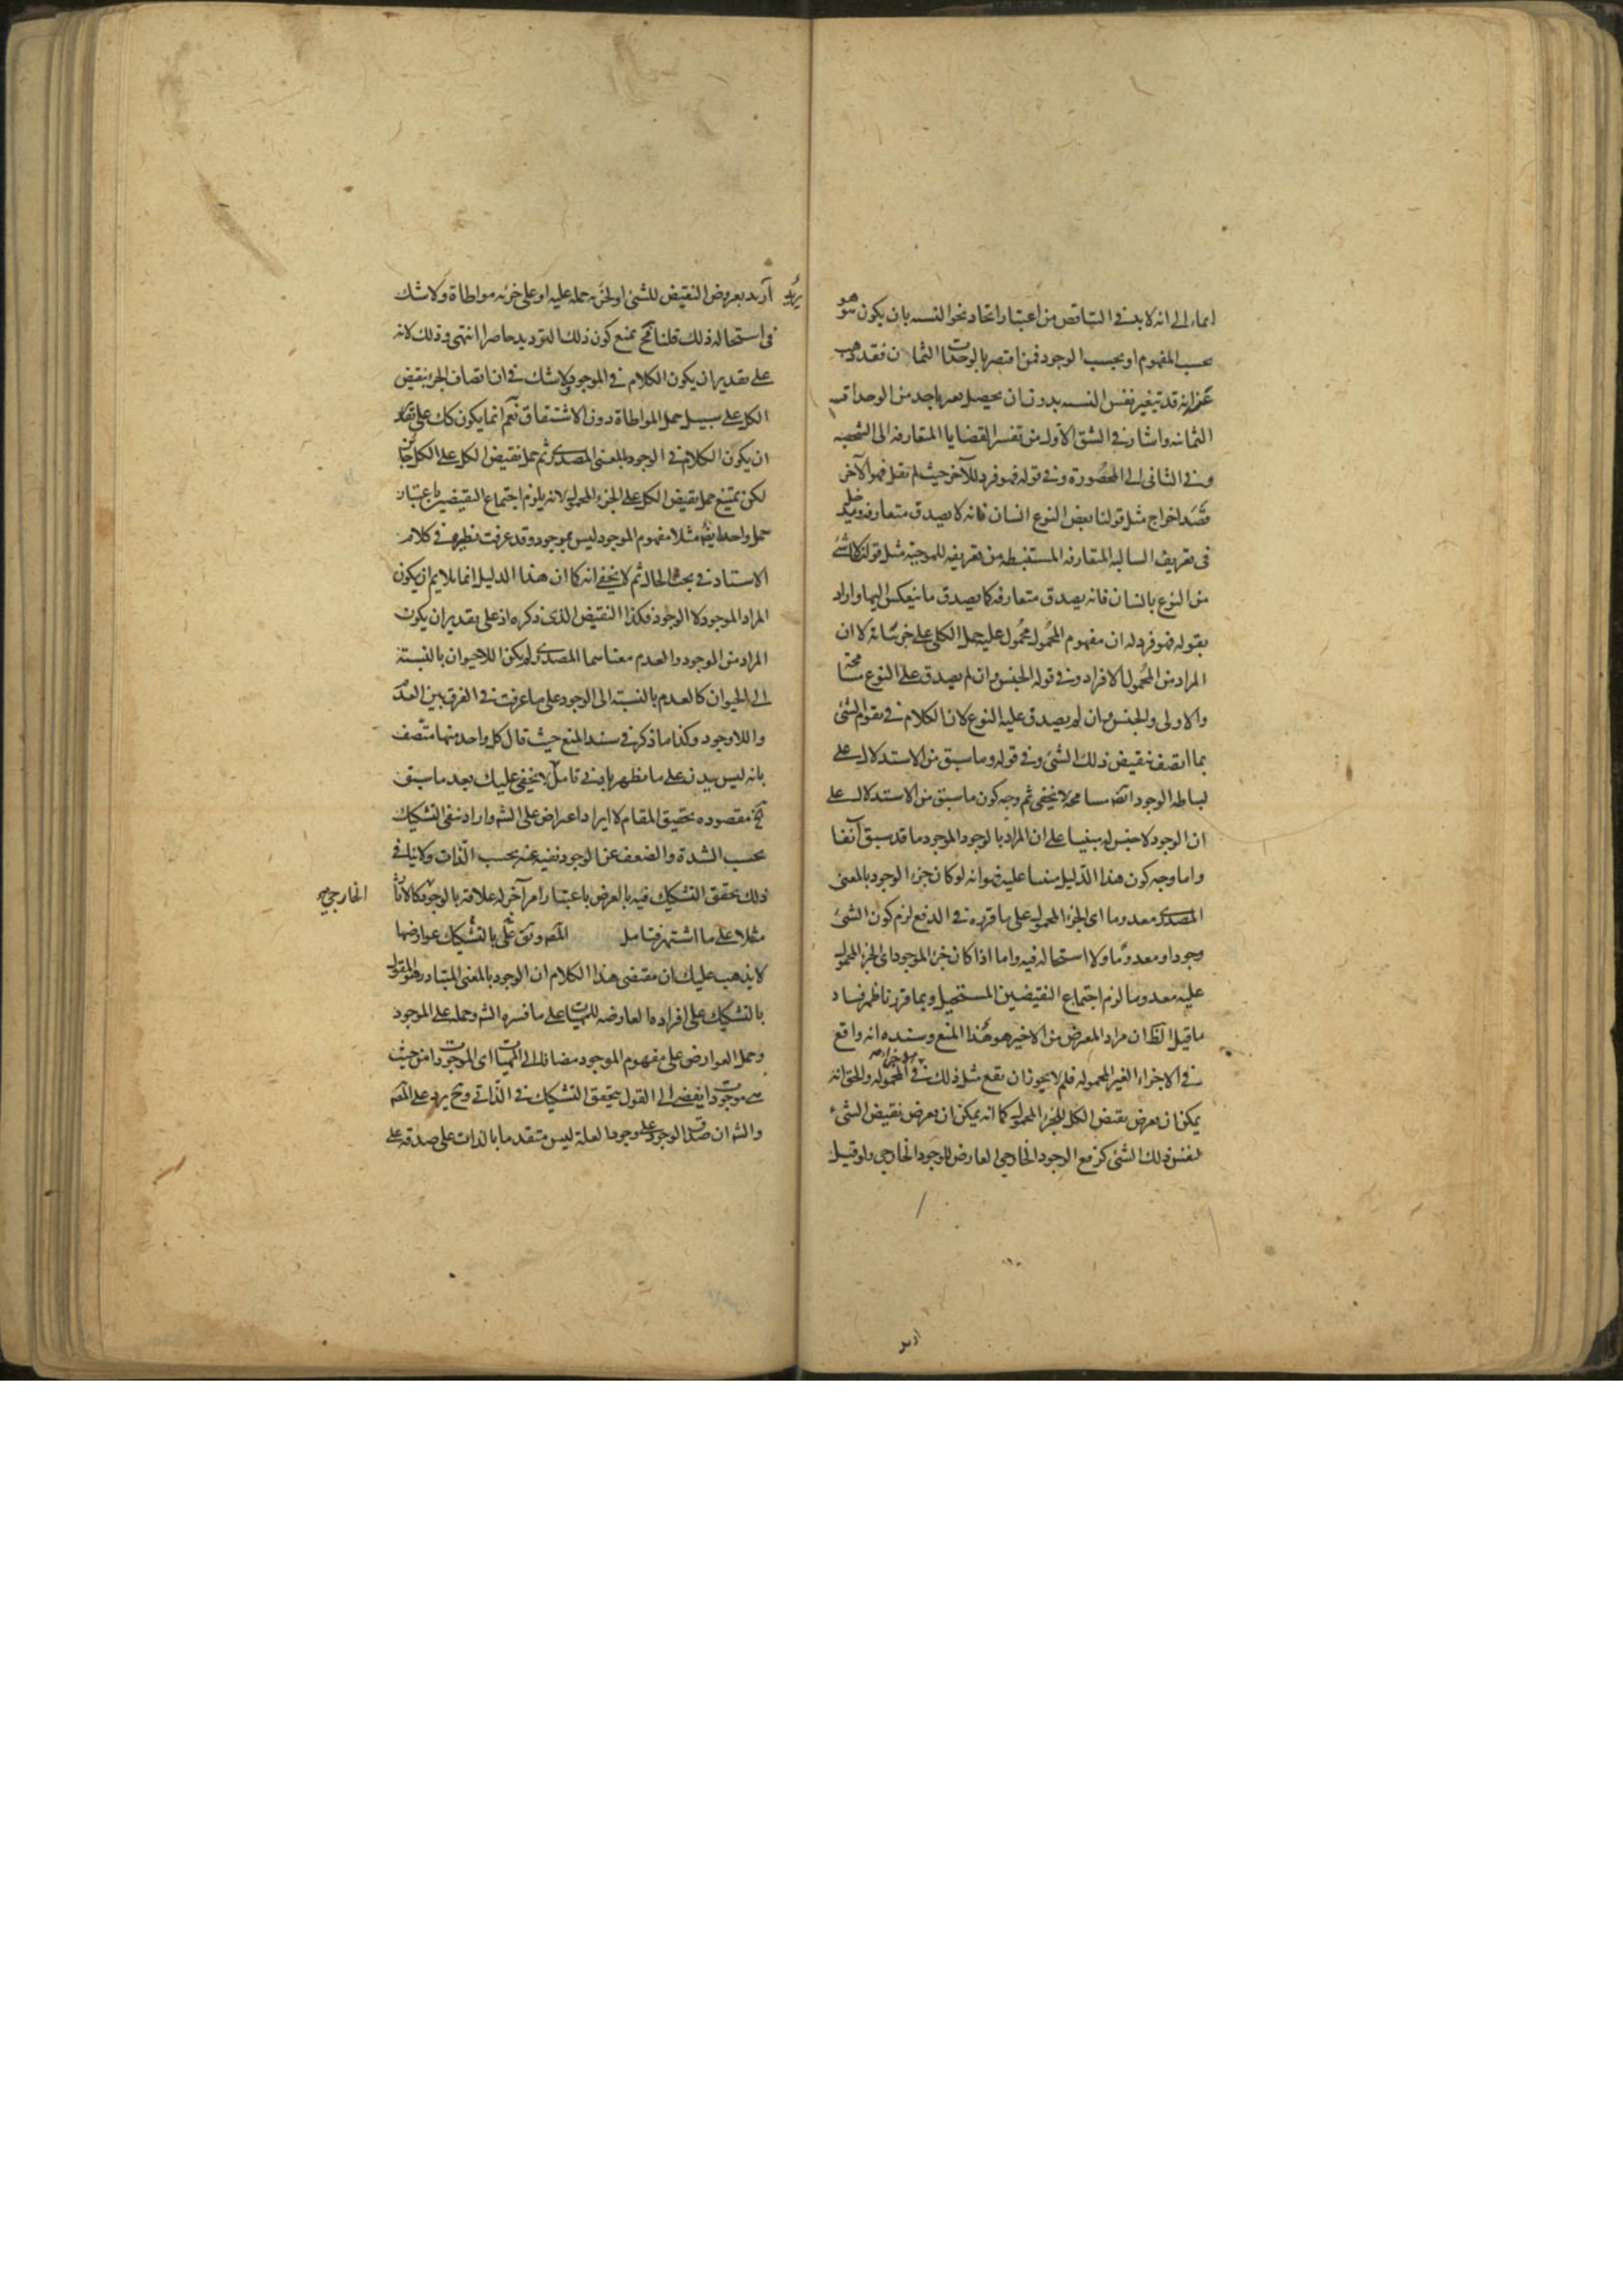 ايماء الى انه لابد في التناقض من اعتبار اتحاد نحو النسبه بان يكون هو هو
بحسب المفهوم او بحسب الوجود فمن اقتصر بالوحدات الثمان فقد ذهب
عن انه قد تتغير نفس النسبه بدون ان يحصل تغير باحد من الوحدات
الثمانيه واشار في الشق الاول من تفسير القضايا المتعارفه الى الشخصيه
وفي الثاني الى المحصورة وفي قوله فهو فرد للآخر حيث لم نقل فهو الآخر
قصد اخراج مثل قولنا بعض النوع انسان فانه لا يصدق متعارفه ويدخل
في تعريف السالبه المتعارفه المستنبطه من تعريفه للموجبة مثل قولنا لا شئ
من النوع بانسان فانه يصدق متعارفه كما يصدق ما ينعكس اليها واراد
بقوله فهو فرد له ان مفهوم المحمول محمول عليه حمل الكلي على جزئياته لا ان
المراد من المحمول الافراد وفي قوله الجنس وان لم يصدق على النوع مسامحة
والاولى والجنس وان لم يصدق عليه النوع لان الكلام في تقوم الشئ
بما اتصف بنقيض ذلك الشئ وفي قوله وما سبق من الاستدلال على
بساطه الوجود ايضا مسامحة لا يخفى ثم وجه كون ما سبق من الاستدلال على
ان الوجود لا جنس له مبنيا على ان المراد بالوجود الموجود ما قد سبق آنفا
واما وجه كون هذا الدليل مبنيا عليه فهو انه لو كان جزء الوجود بالمعنى
المصدري معدوما اي الجزء المحمول على ما قرره في الدفع لزم كون الشئ
وجودا ومعدوما ولا استحاله فيه واما اذا كان جزء الموجود اي الجزء المحمول
عليه معدوما لزم اجتماع النقيضين المستحيل وبما قررنا ظهر فساد
ما قيل الظ ان مراد المعترض من الاخير هو هذا المنع وسنده انه واقع
في الاجزاء الغير المحموله فلم لا يجوز ان يقع مثل ذلك في المحموله والحق انه
يمكن ان يعرض نقيض الكل للجزء المحمول كما انه يمكن ان يعرض نقيض الشئ
لنفس ذلك الشئ كز مع الوجود الخارجي العارض للوجود الخارجي ولو قيل
اريد
اريد بعروض النقيض للشئ او لجزئه حمله عليه او على جزئه مواطاة ولا شك
في استحاله ذلك قلنا فح نمنع كون ذلك الترديد حاصرا انتهى وذلك لانه
على تقدير ان يكون الكلام في الموجود لا شك في ان اتصاف الجزء بنقيض
الكل على سبيل حمل المواطاة دون الاشتقاق نعم انما يكون كك على تقدير
ان يكون الكلام في الوجود بالمعنى المصدري ثم حمل نقيض الكل على الكل
لكن يمتنع حمل نقيض الكل على الجزء المحمول لانه يلزم اجتماع النقيضين باعتبار
حمل واحد ايضا مثلا مفهوم الموجود ليس بموجود وقد عرفت نظيره في كلام
الاستاد في بحث الحال ثم لا يخفى انه كما ان هذا الدليل انما يلايم ان يكون
المراد الموجود لا الوجود فكذا النقيض الذي ذكره اذ على تقدير ان يكون
المراد من الوجود والعدم معناهما المصدري لم يكن اللاحيوان بالنسبة
الى الحيوان كالعدم بالنسبة الى الوجود على ما عرفت في الفرق بين العدم
واللاوجود وكذا ما ذكره في سند المنع حيث قال كل واحد منها متصف
بانه ليس بيدن على ما مظهر بادنى تامل لا يخفى عليك بعد ما سبق
مقصوده تحقيق المقام لا ايراد اعتراض على الشه واراد نفي التشكيك
بحسب الشدة والضعف عن الوجود نفيه عنه بحسب الذات ولا ينافي
ذلك تحقق التشكيك فيه بالعرض باعتبار امر آخر له علاقه بالوجود كالآثار
الخارجيه
مثلا على ما اشتهر فتامل المص ويق على بالتشكيك عوارضها
لا يذهب عليك ان مقتضى هذا الكلام ان الوجود بالمعنى المتبادر هو المقول
بالتشكيك على افراده العارضه للمهيات على ما فسره الشه وحمله على الموجود
وحمل العوارض على مفهوم الموجود مضافا الى المهيات اي الموجودات من حيث
هي موجودات يفضي الى القول بتحقق التشكيك في الذاتي وح يرد على المص
والشه ان صدق الوجود على وجود العلة ليس متقدما بالذات على صدقه على